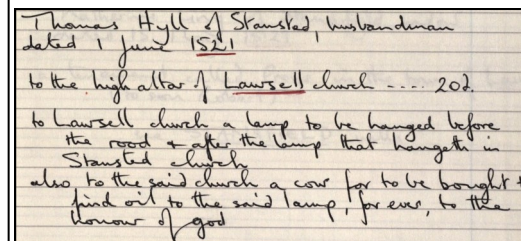 Thomas Hyll of Stansted, husbandman
dated 1 June 1521
to the high altar of Lawsell church .... 20d.
to Lawsell church a lamp to be hanged before
the rood + after the lamp that hangeth in
Stansted church
also to the said church a cow for to be bought +
find oil to the said lamp, for ever, to the
honour of god